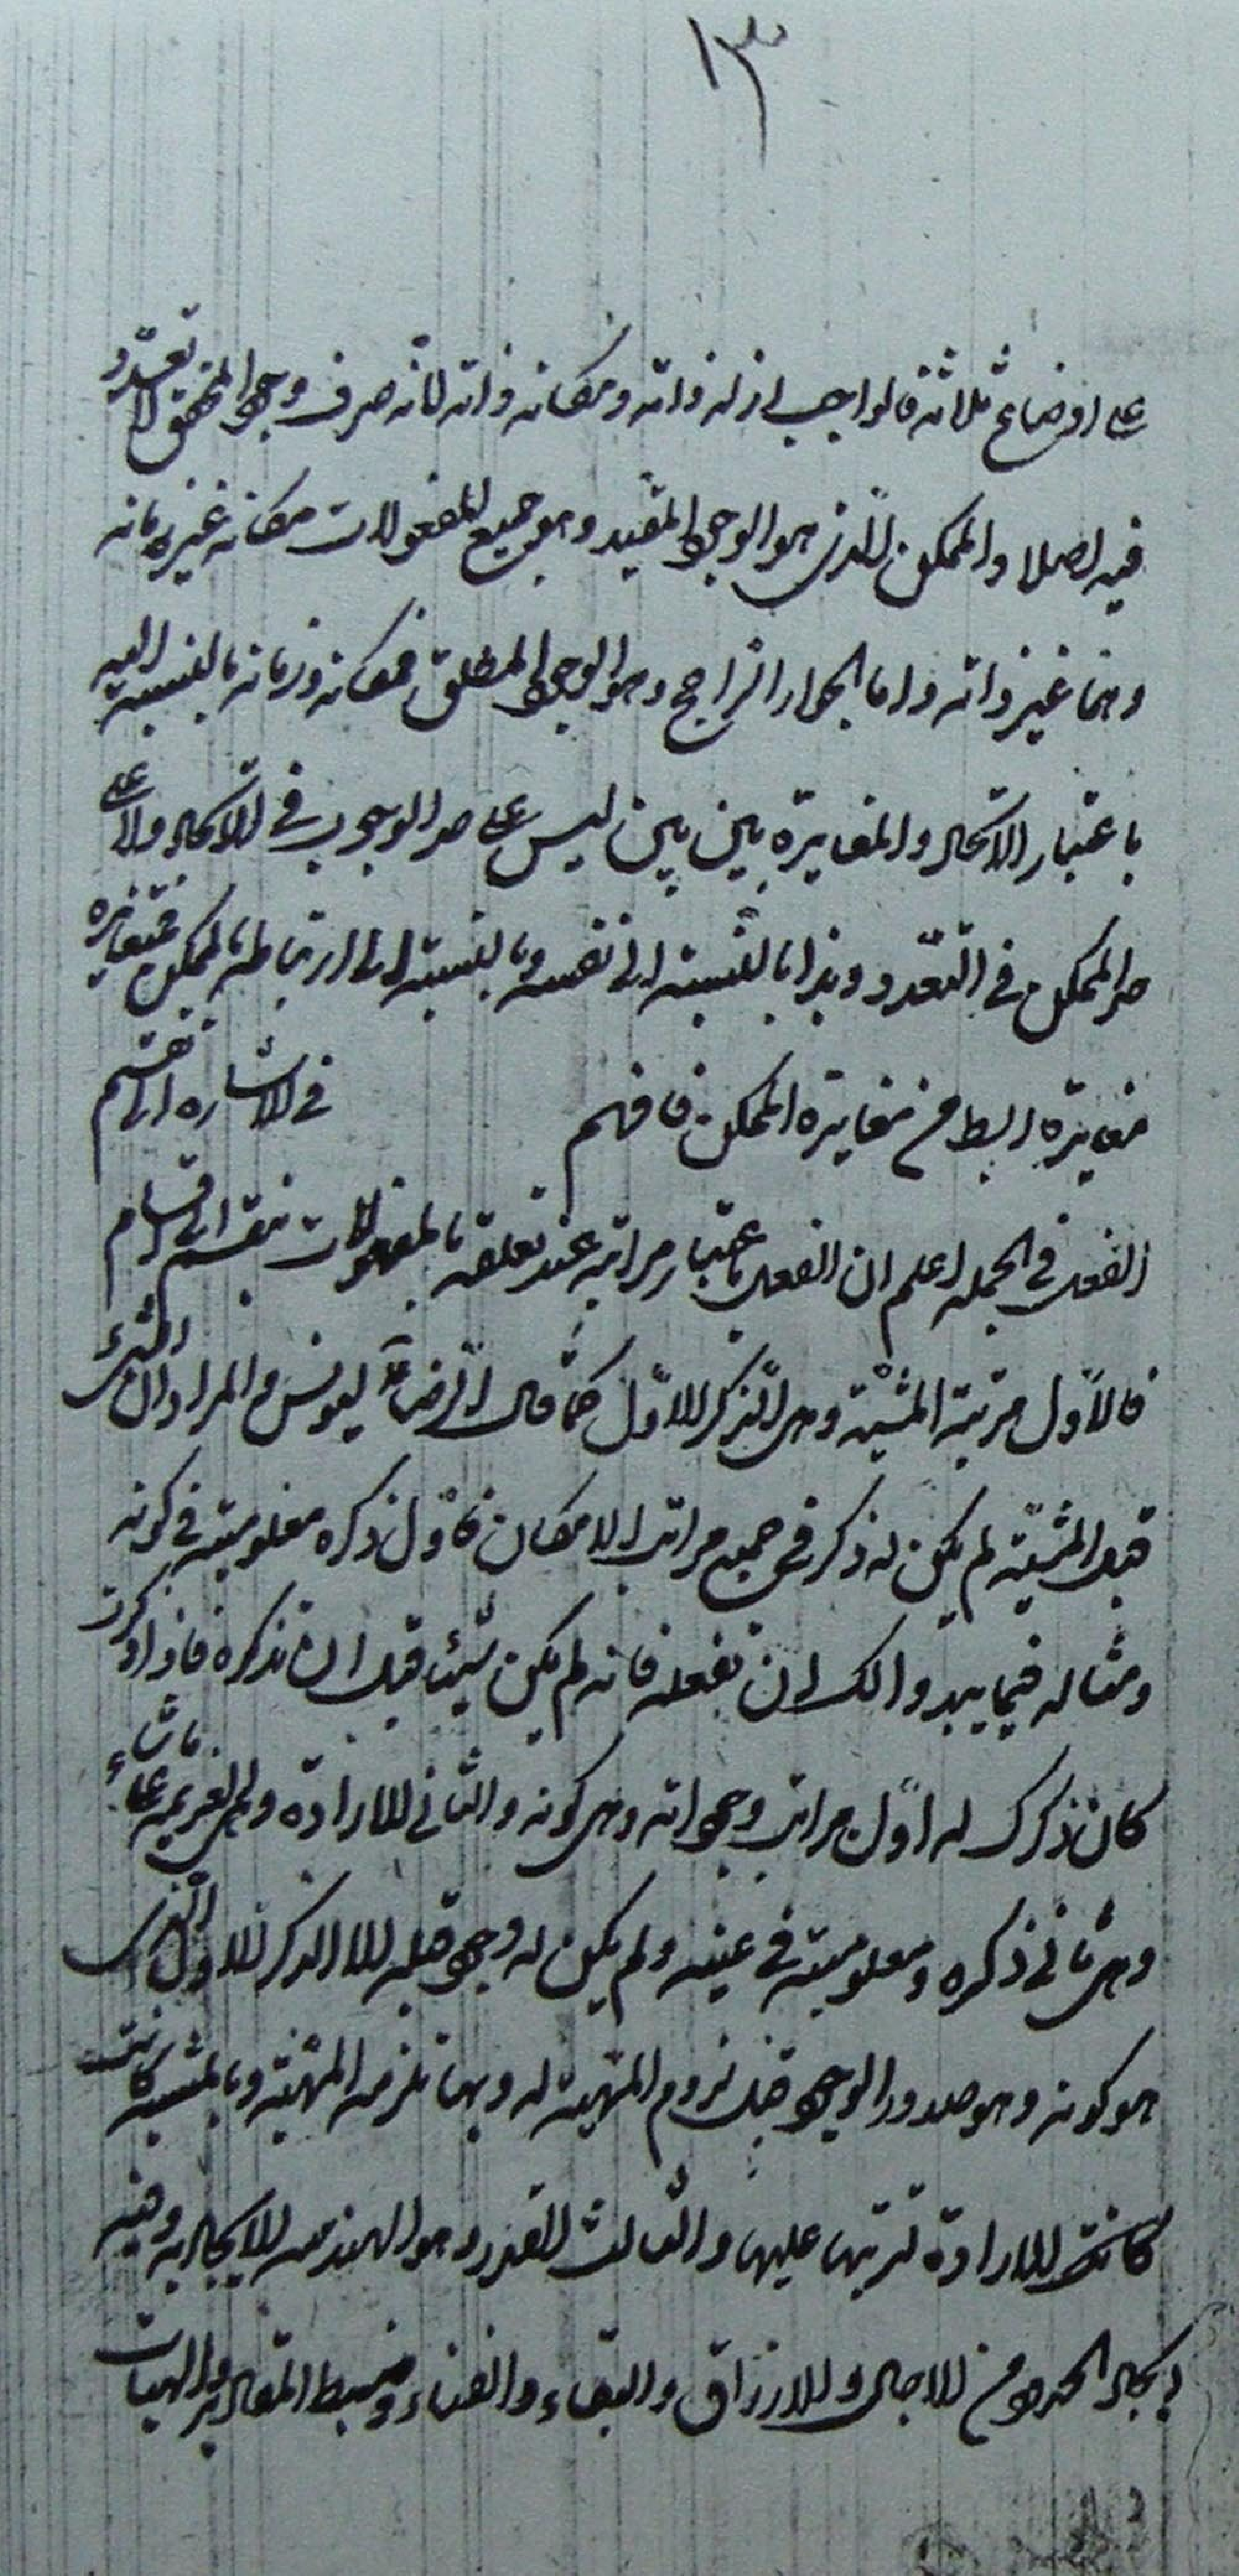 ١٣
على اوضاع ثلاثة فالواجب ازله ذاته ومكانه ذاته لانه صرف وجود المحقق لا تعدد
فيه اصلا والممكن الذي هو الوجود المقيد وهو جميع المفعولات مكانه غير زمانه
وهما غير ذاته واما الجواز الراجح وهو الوجود المطلق فمكانه وزمانه بالنسبة اليه
باعتبار الاتحاد والمغايرة بين بين ليس على حد الوجوب في الاتحاد ولا على
حد الممكن في التعدد وهذا بالنسبة الى نفسه وبالنسبة الى ارتباطه بالممكن فمتغايرة
مغايرة ابسط من مغايرة الممكن فافهم في الاشارة الى تقسيم
الفعل في الجملة اعلم ان الفعل باعتبار مراتبه عند تعلقه بالمفعولات ينقسم الى اقسام
فالاول مرتبة المشية وهي الذكر الاول كما قال الرضا ع ليونس والمراد ان الشيء
قبل المشية لم يكن له ذكر في جميع مراتب الامكان فاول ذكره معلوميته في كونه
ومثاله فيما يبدو لك ان تفعله فانه لم يكن شيئا قبل ان تذكره فاذا ذكرت
كان ذكرك له اول مراتب وجوداته وهي كونه والثاني الارادة وهي العزيمة على ما شاء
وهي ثاني ذكره ومعلوميته في عينه ولم يكن له وجود قبله الا الذكر الاول الذي
هو كونه وهو صدور الوجود قبل لزوم المهية له وبها تلزمه المهية وبالمشية كانت
كانت الارادة لترتبها عليها والثالث القدر وهو الهندسة الايجادية وفيه
ايجاد الحدود من الاجال والارزاق والبقاء والفناء وضبط المقادير والهيات